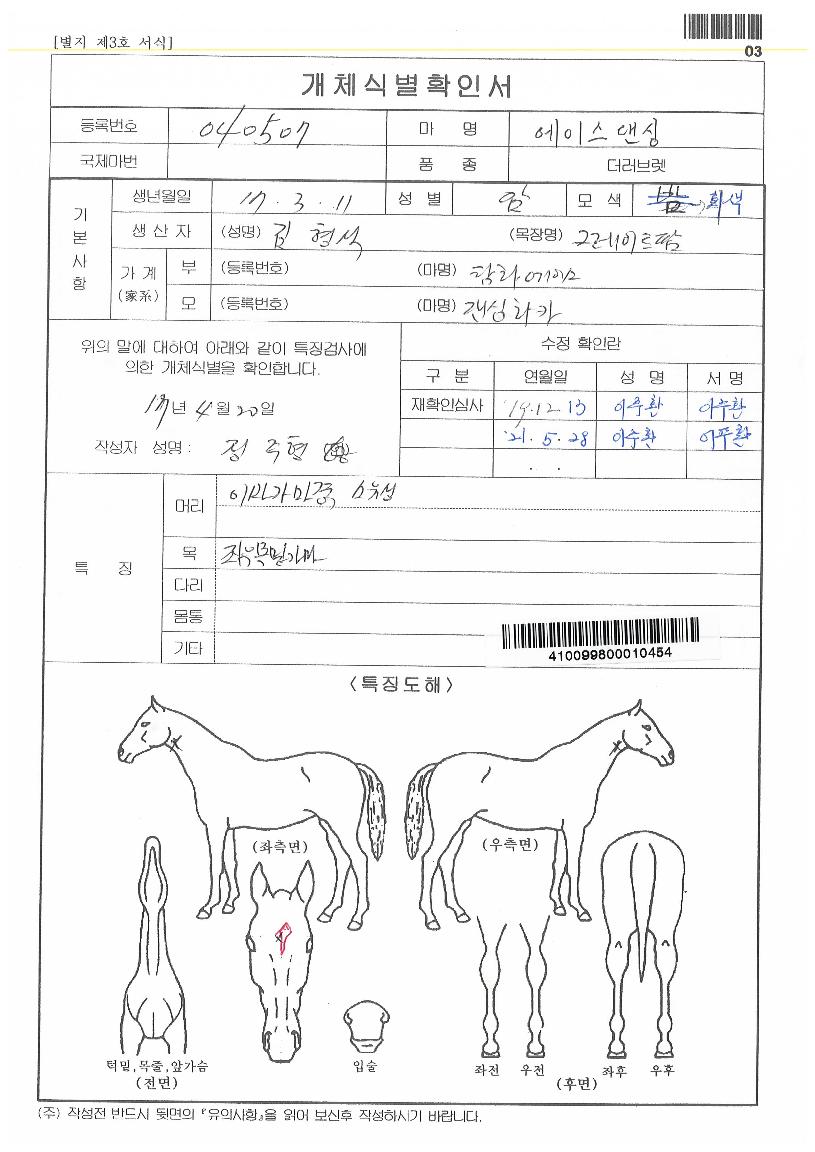 [별지 제3호 서식]
03
개체식별확인서
등록번호 040507 마 명 에이스댄싱
국제마번 품 종 더러브렛
기본사항
생년월일 17. 3. 11 성 별 암 모 색 밤 → 회색
생 산 자 (성명) 김형식 (목장명) 그레이트팜
가 계 (家系) 부 (등록번호) (마명) 탐라에이스
모 (등록번호) (마명) 댄싱하카
위의 말에 대하여 아래와 같이 특징검사에
의한 개체식별을 확인합니다.
17년 4월 20일
작성자 성명 : 정주현
수정 확인란
구 분 연월일 성 명 서 명
재확인심사 '19.12.13 이주환 이주환
'21.5.28 이주환 이주환
. .
특 징
머리
목
다리
몸통
기타
410099800010454
<특징도해>
(좌측면)
(우측면)
턱밑,목줄,앞가슴
(전면)
입술
좌전 우전 좌후 우후
(후면)
(주) 작성전 반드시 뒷면의 『유의사항』을 읽어 보신후 작성하시기 바랍니다.